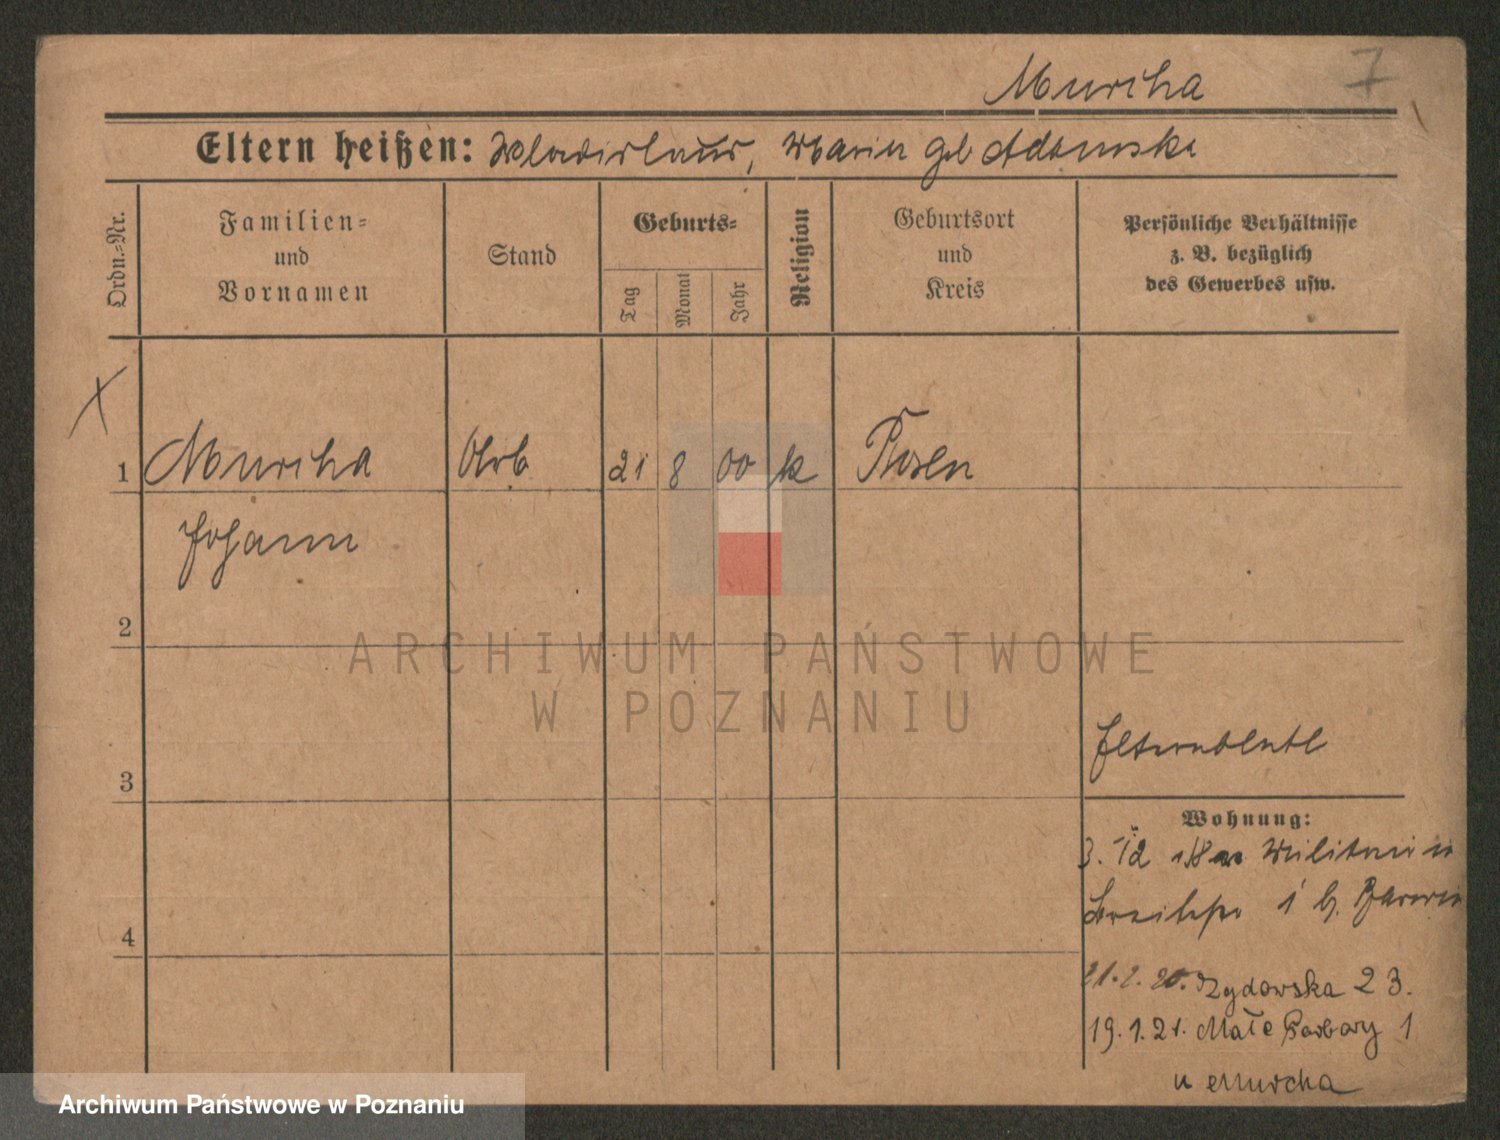 7
Murcha
Eltern heißen: Wladislaus, Maria geb Adamska
Ordn.-Nr.
Familien-
und
Vornamen
Stand
Geburts-
Tag
Monat
Jahr
Religion
Geburtsort
und
Kreis
Persönliche Verhältnisse
z. B. bezüglich
des Gewerbes usw.
1 Murcha Arb 21 8 00 k Posen
Johann
2
ARCHIWUM PAŃSTWOWE
W POZNANIU
Elternblatt
3
Wohnung:
3. 12 18
1 b.
4
21.2.20. Żydowska 23.
19.1.21. Małe Garbary 1
u Murcha
Archiwum Państwowe w Poznaniu